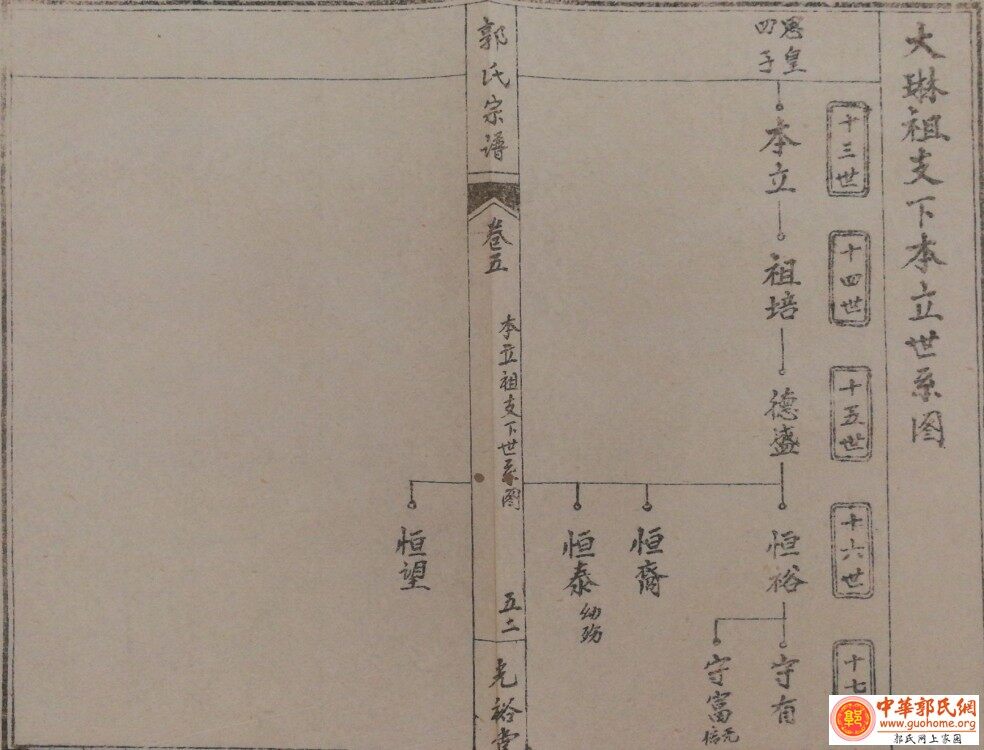 大琳祖支下本立世系图
十三世
十四世
十五世
十六世
十七
思皇
四子
本立
祖培
德盛
恒裕
恒裔
恒泰
幼殇
恒望
守有
守富
郭氏宗谱
卷五
本立祖支下世系图
五二
光裕堂
中華郭氏網
www.guohome.org
郭氏网上家园